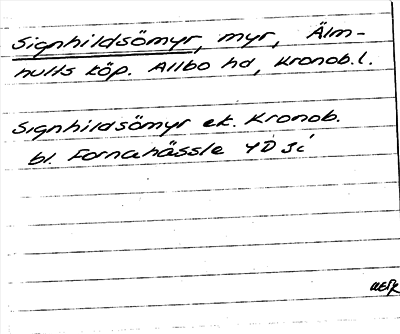 Signhildsömyr, myr, Älm-
hults köp. Allbo hd, Kronob. l.
Signhildsömyr ek. Kronob.
bl. Fornahässle 4D 3i